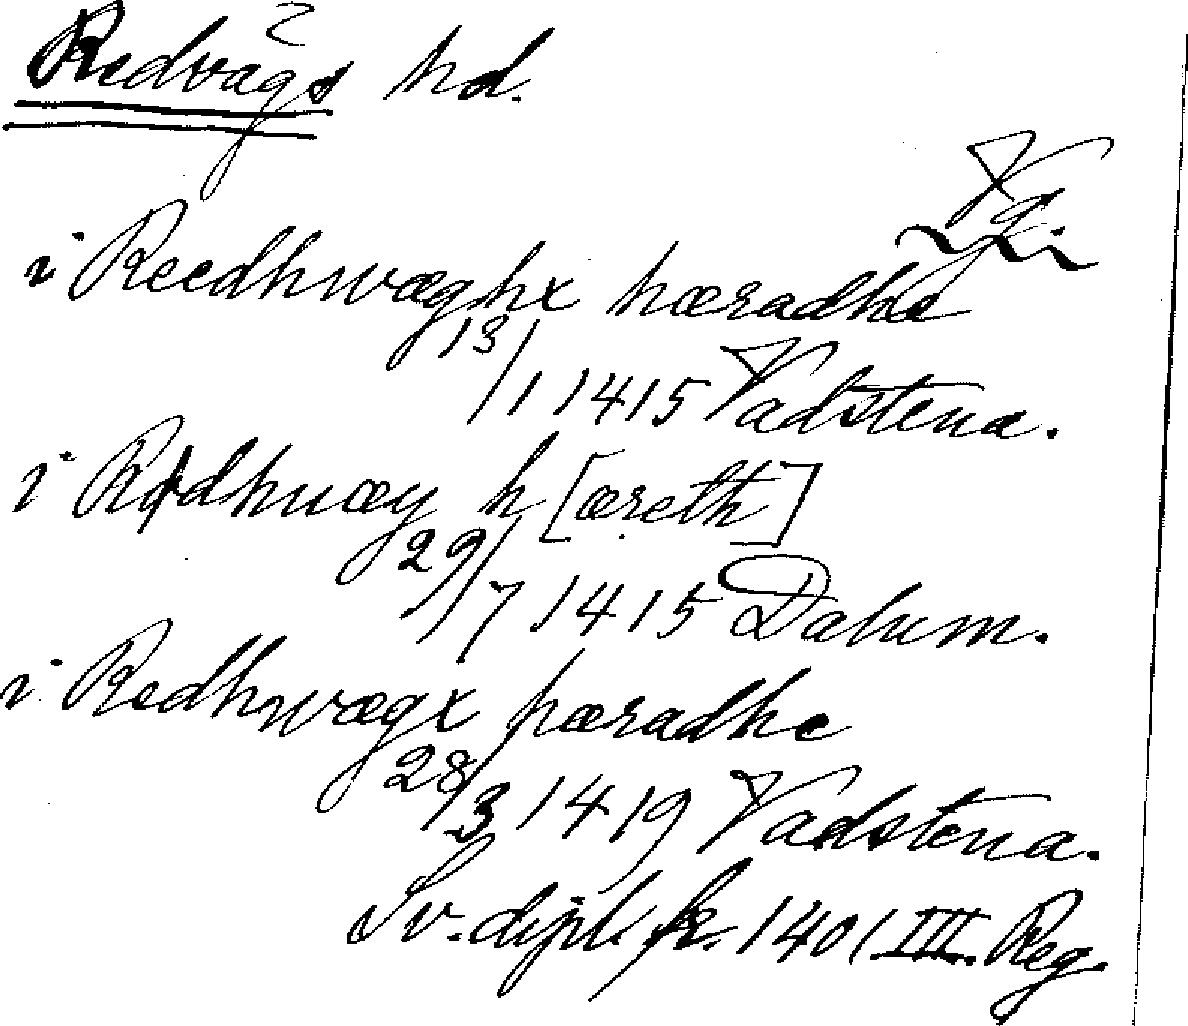 Redvägs hd.
Vg.
i Reedhwæghx hæradhe
13/1 1415 Vadstena.
i Redhuæg h [æreth]
29/7 1415 Dalum.
i Redhwægx hæradhe
28/3 1419 Vadstena.
Sv. dipl. fr. 1401 III. Reg.